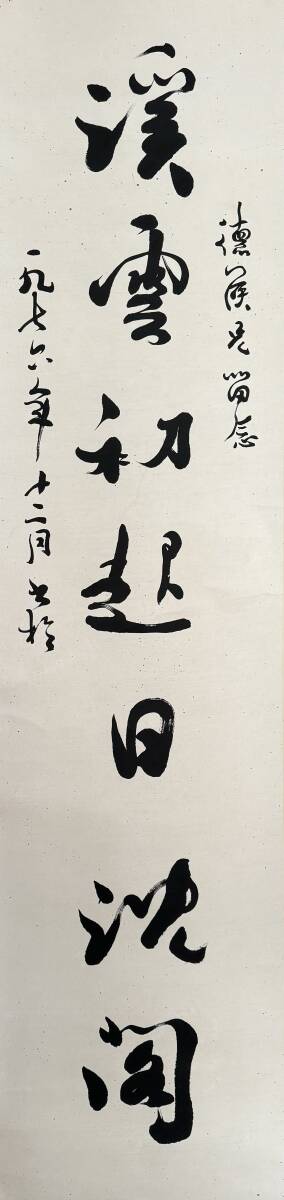 德俟兄留念
溪雲初起日沈閣
一九七六年十二月书於